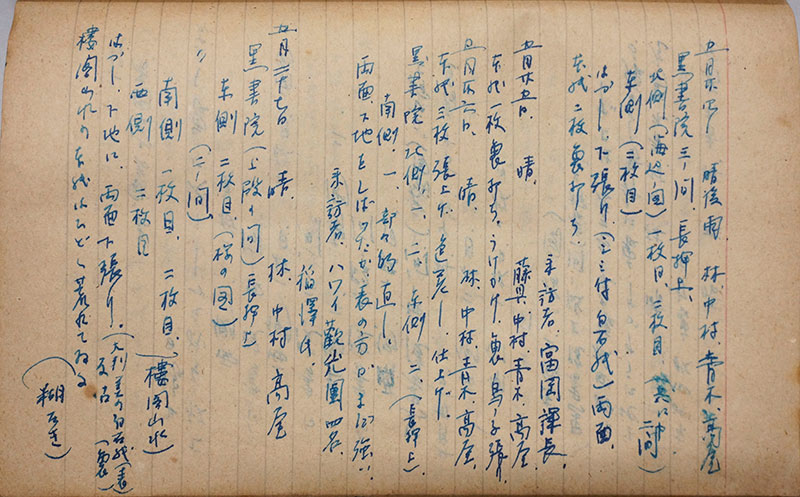 五月廿四日 晴後雨 林 中村 青木 高屋
黒書院三ノ間、長押上、
北側(海辺ノ図)一枚目、二枚目
東側(二枚目)
はがし下張り 両面
本紙二枚裏打ち、
来訪者、富岡課長、
五月廿五日、 晴、 藤具、中村、青木、高屋
本紙一枚裏打ち、うけかけ、裏鳥ノ子張り
五月廿六日、 晴、 林、中村、青木、高屋
本紙三枚張上ゲ、色充し、仕上げ、
黒書院 北側、一、二、東側 二、(長押上)
南側、一 部分的直し、
両面下地をしばつたが表の方が 強い、
来訪者、ハワイ観光団 四名、
稲澤氏、
五月二十七日 晴、 林、中村 高屋
黒書院(上段ノ間)長押上
東側 二枚目、(桜の図)
〃 (二ノ間)
南側 一枚目、二枚目、(楼閣山水)
西側 二枚目
はがし、下地に、両面下張り、
楼閣山水の本紙はひどく荒れてゐる